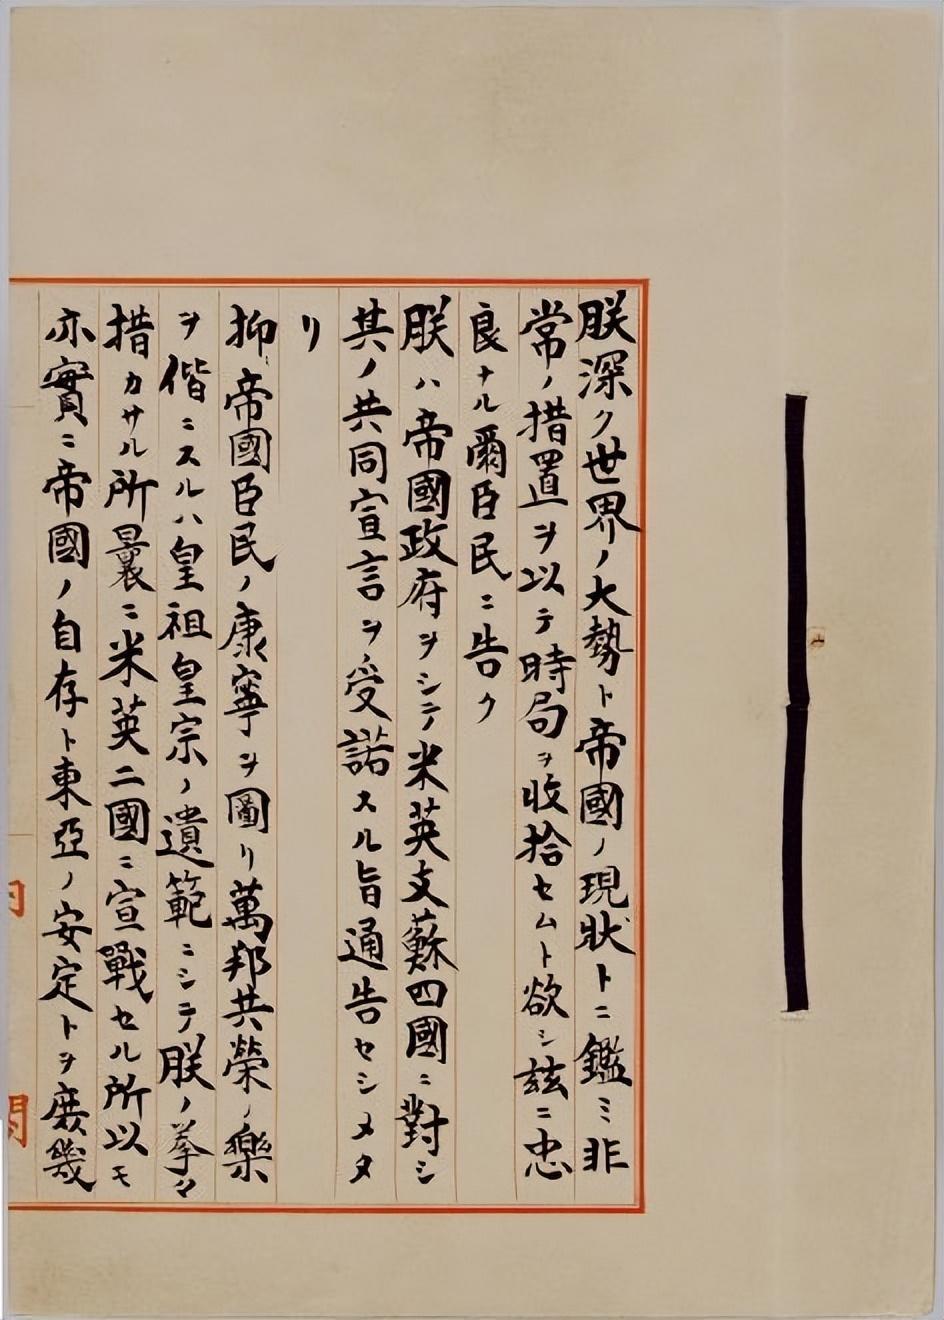 朕深ク世界ノ大勢ト帝國ノ現狀トニ鑑ミ非
常ノ措置ヲ以テ時局ヲ收拾セムト欲シ茲ニ忠
良ナル爾臣民ニ告ク
朕ハ帝國政府ヲシテ米英支蘇四國ニ對シ
其ノ共同宣言ヲ受諾スル旨通告セシメタ
リ
抑〻帝國臣民ノ康寧ヲ圖リ萬邦共榮ノ樂
ヲ偕ニスルハ皇祖皇宗ノ遺範ニシテ朕ノ拳〻
措カサル所曩ニ米英二國ニ宣戰セル所以モ
亦實ニ帝國ノ自存ト東亞ノ安定トヲ庶幾
內閣